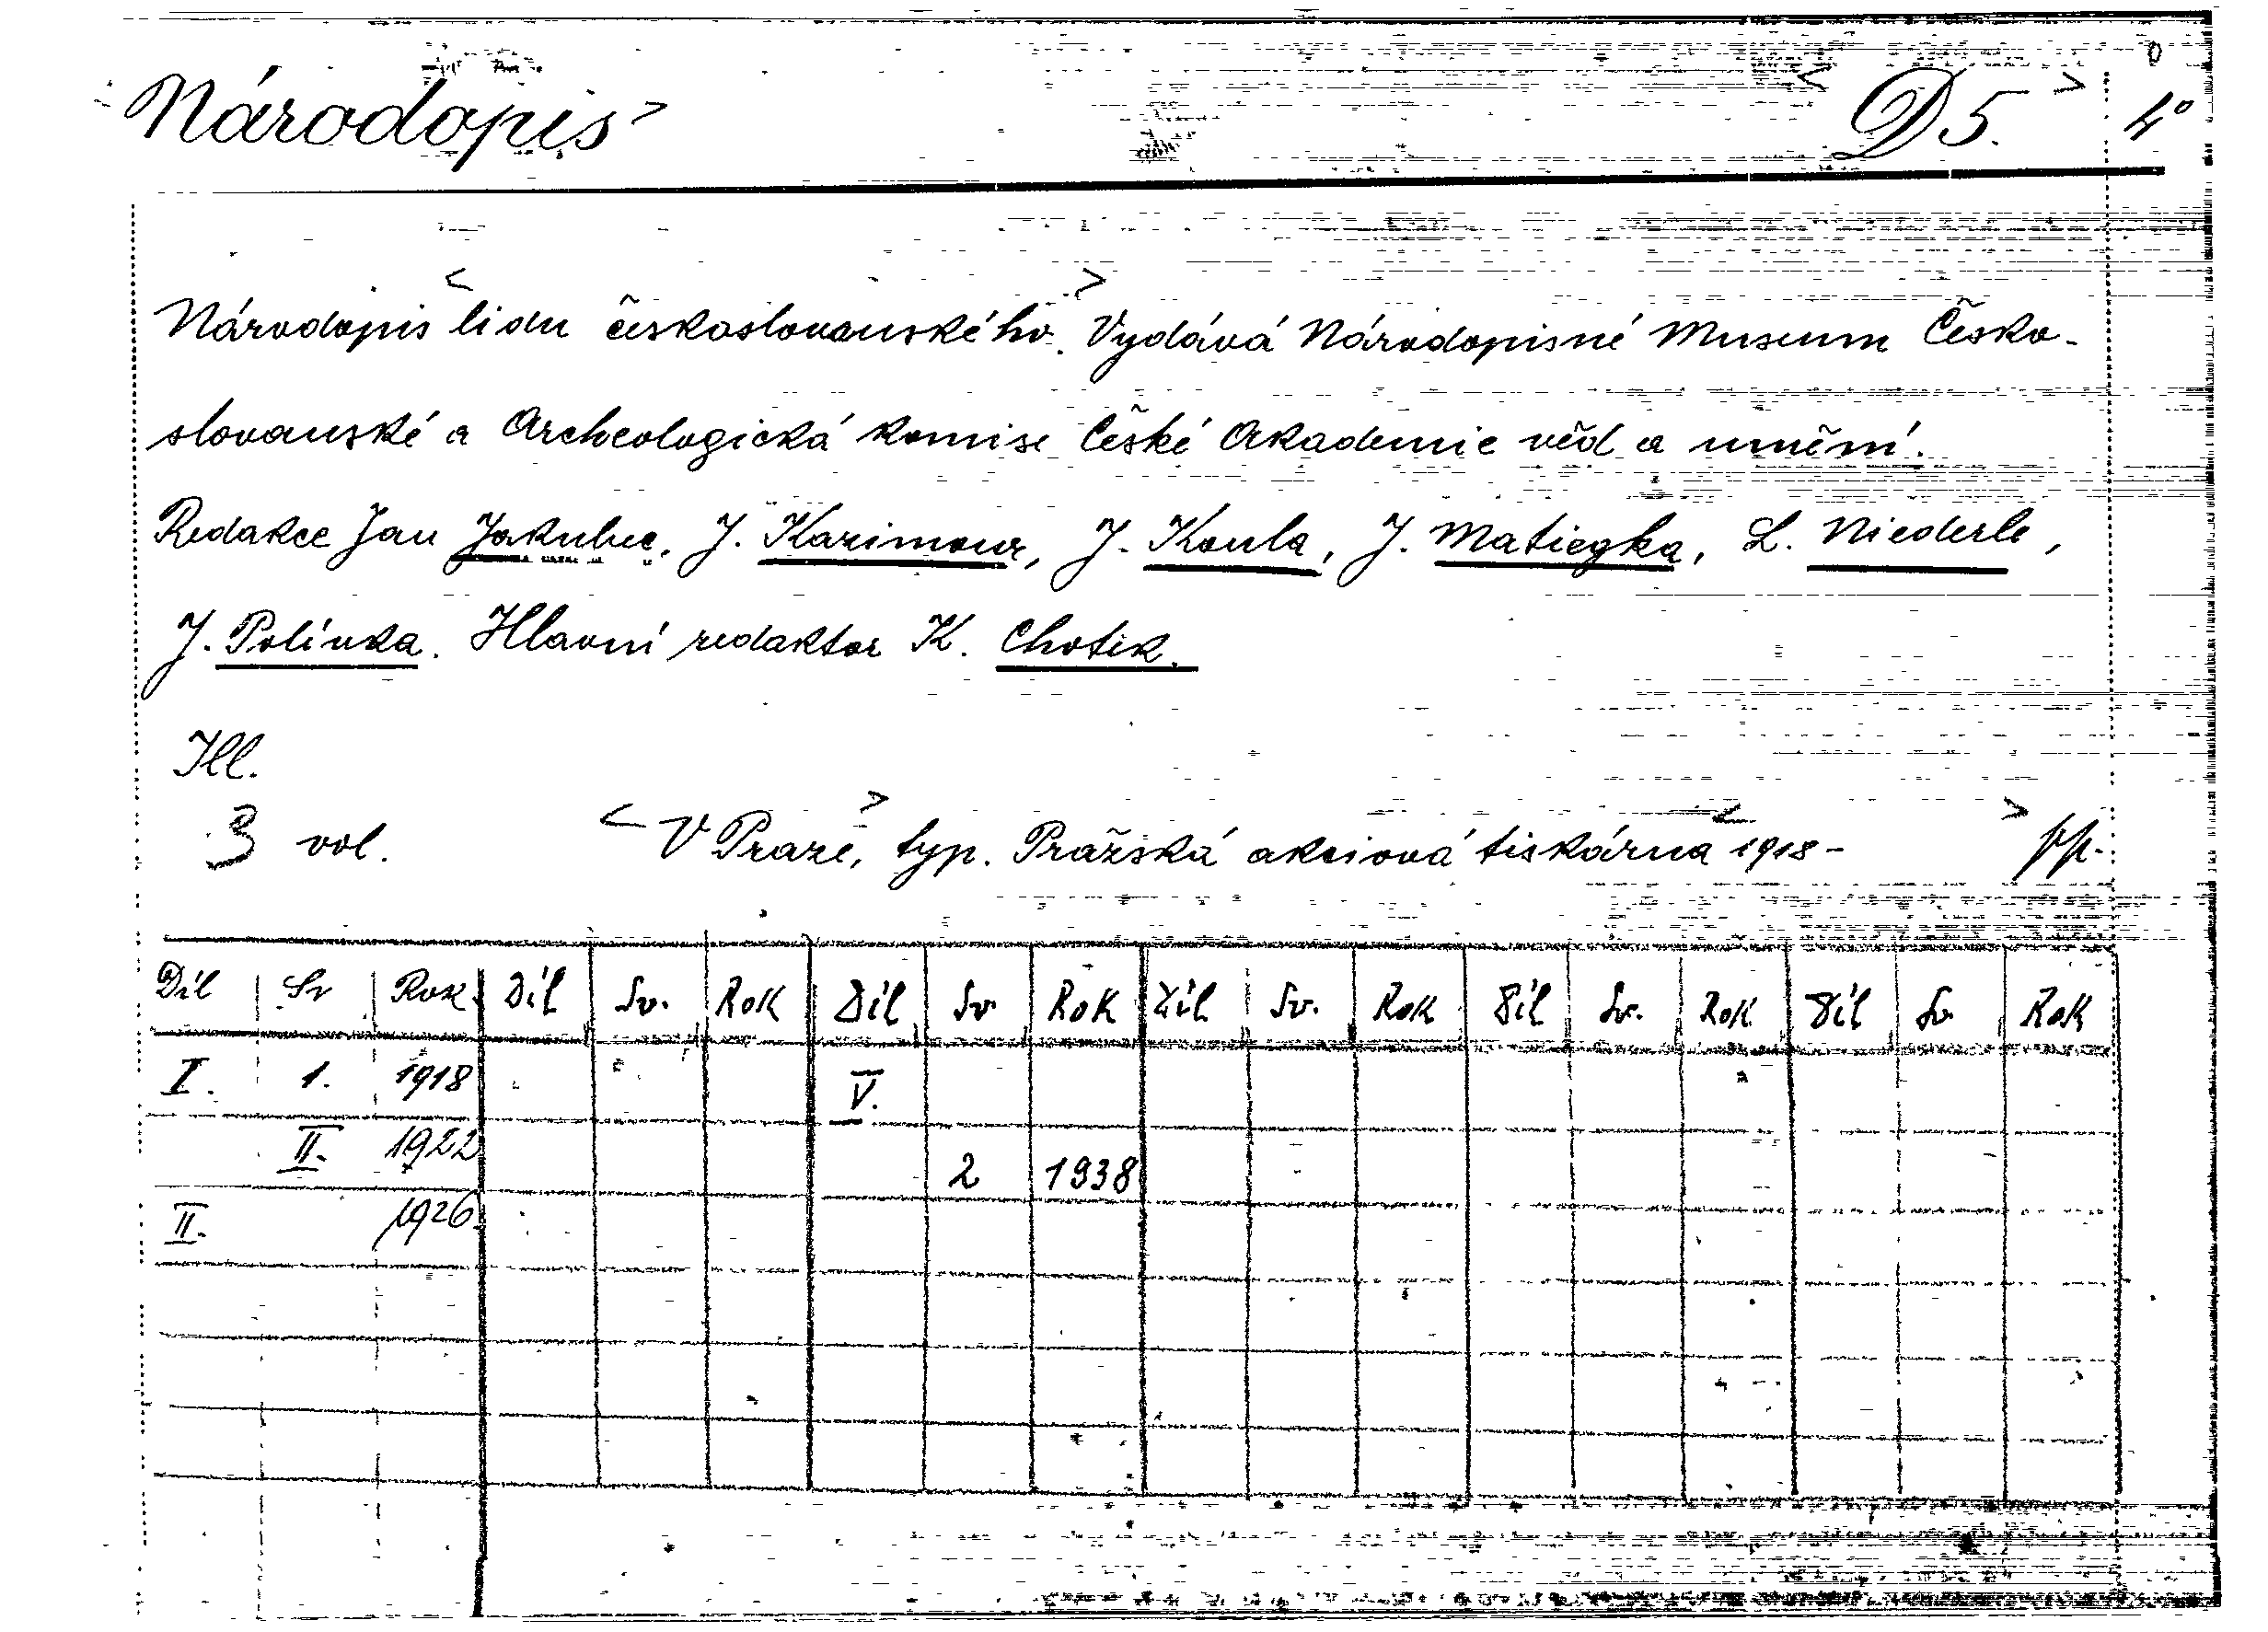 Národopis >
< D 5. > 4°
Národopis < lidu českoslovanského. > Vydává Národopisné Museum Česko-
slovanské a Archeologická komise České Akademie věd a umění.
Redakce Jan Jakubec, J. Kazimour, J. Koula, J. Matiegka, L. Niederle,
J. Polívka. Hlavní redaktor K. Chotek.
Ill.
3 vol. < V Praze, > typ. Pražská akciová tiskárna < 1918 - >
Díl Sv Rok Díl Sv. Rok Díl Sv Rok Díl Sv. Rok Díl Sv. Rok Díl Sv Rok
I. 1. 1918 V.
II. 1922 2 1938
II. 1926